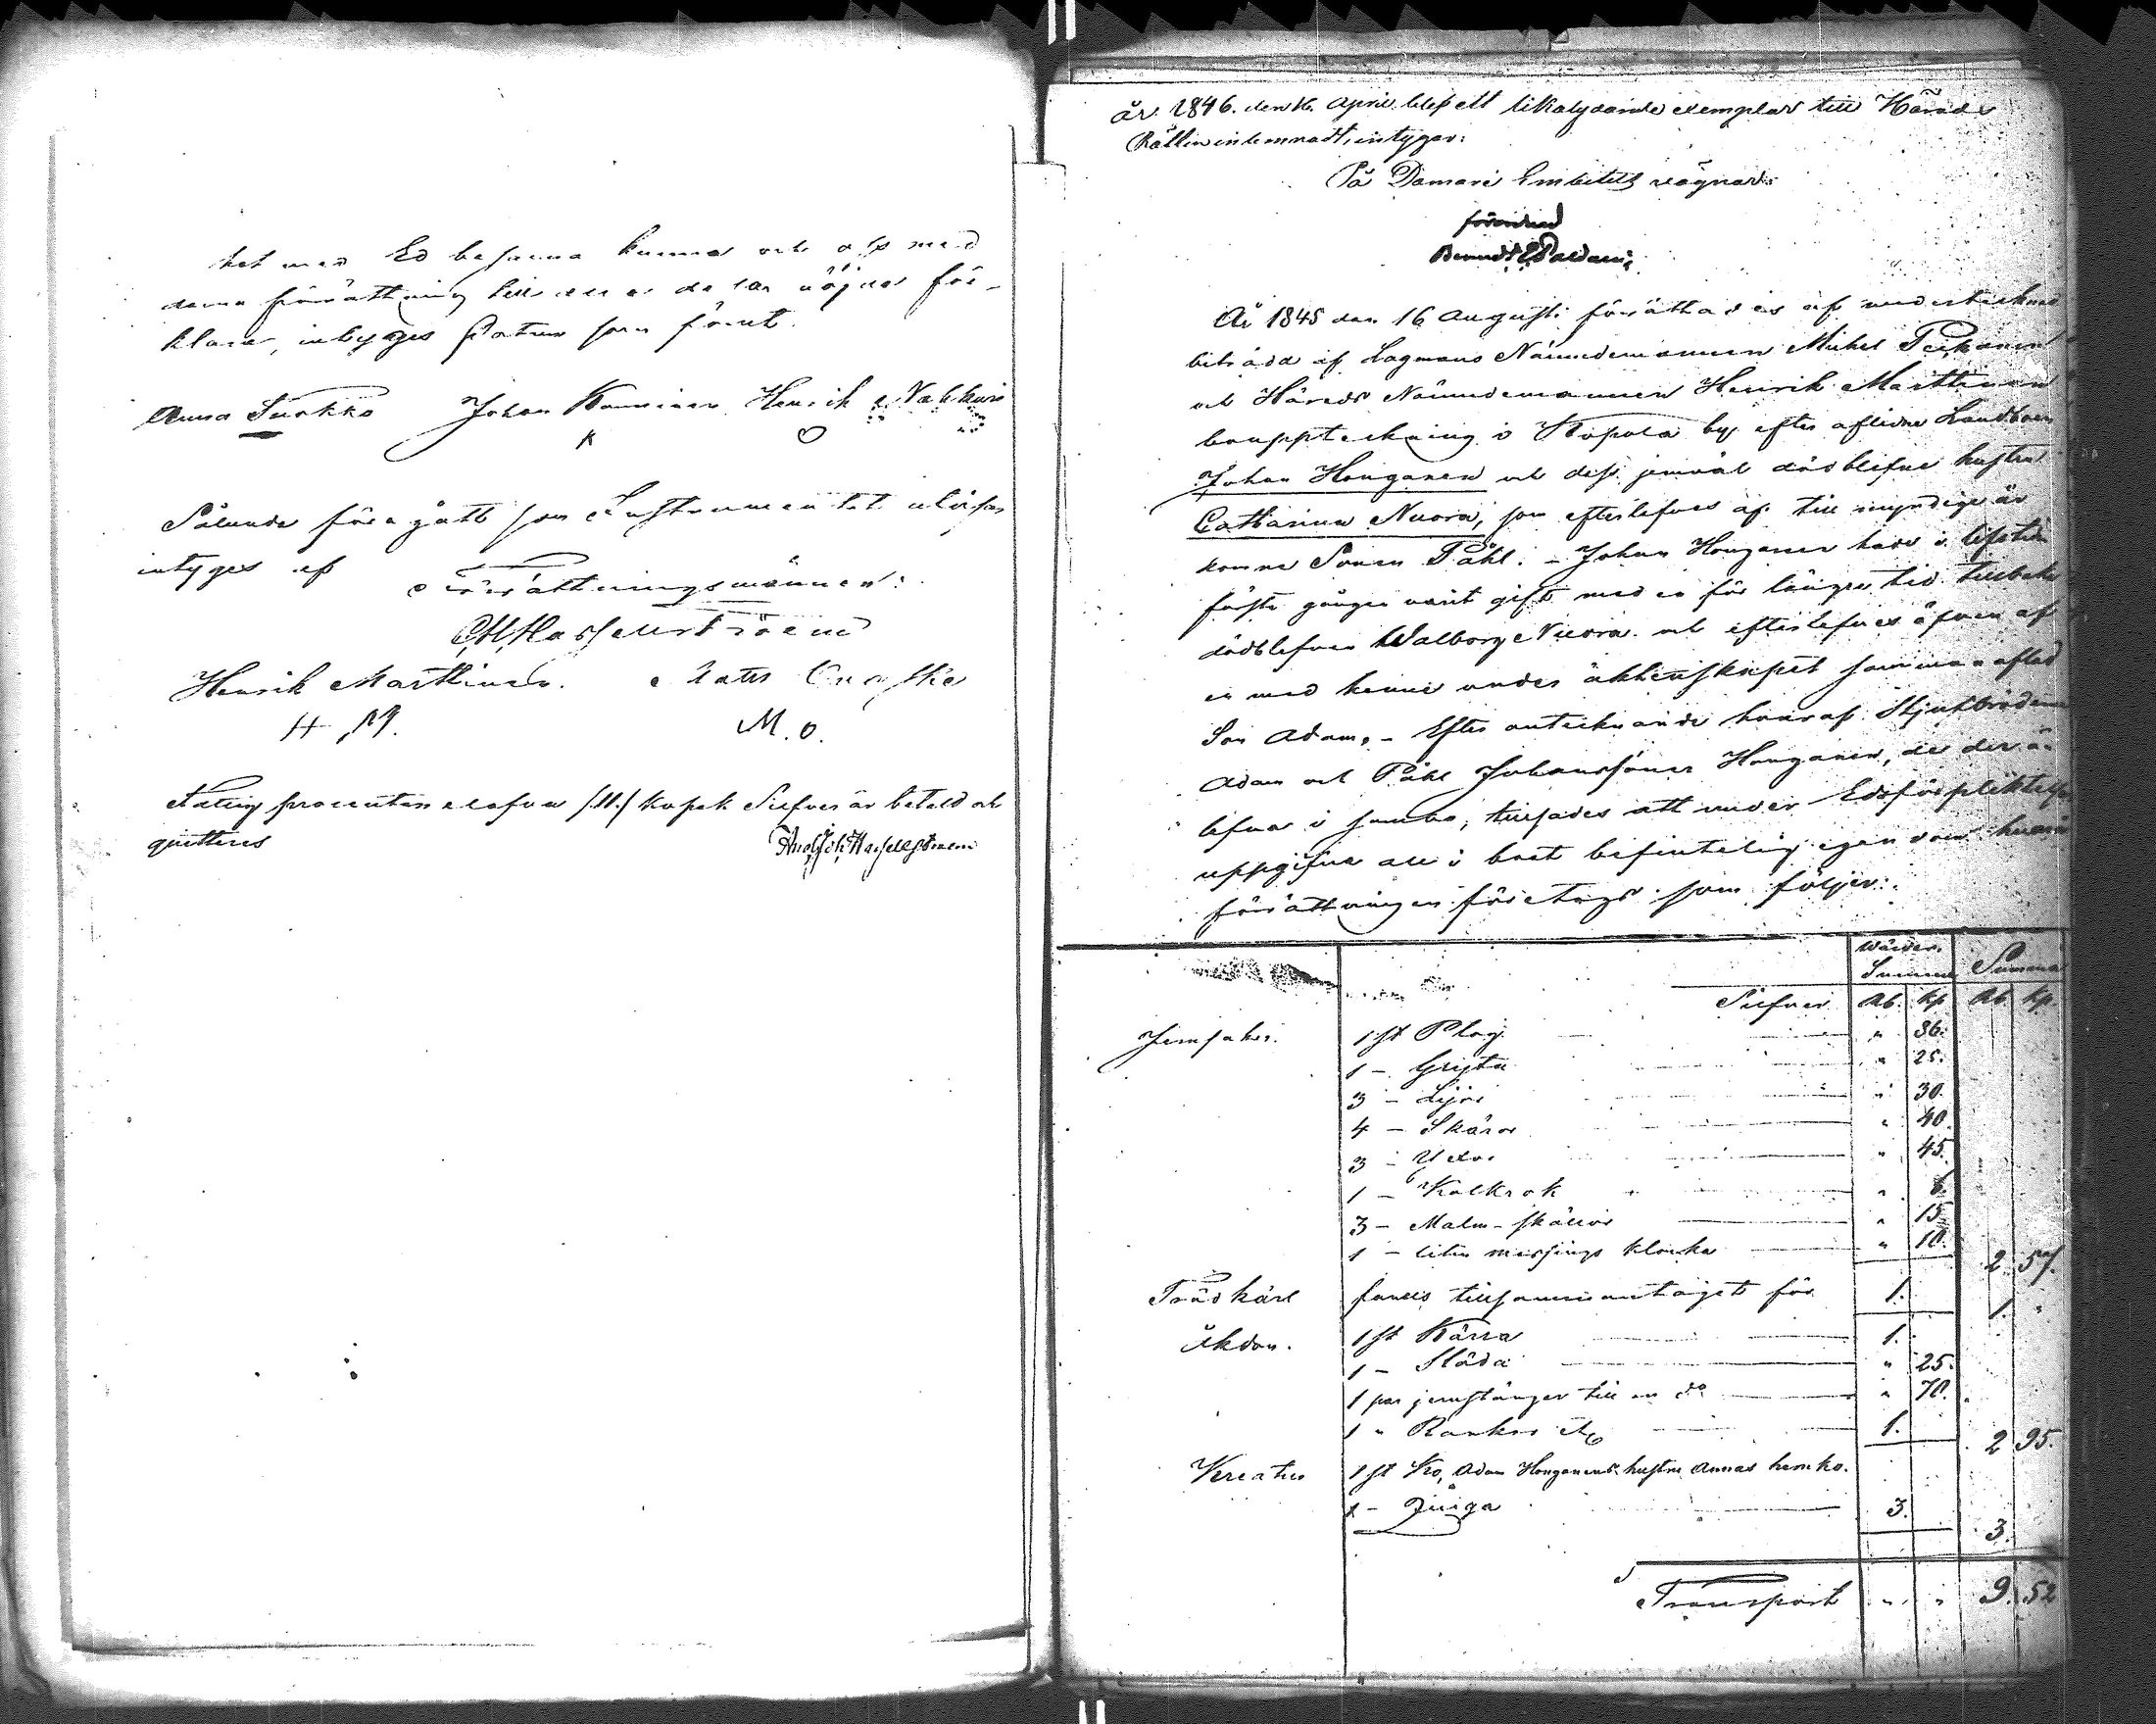 tet med Ed besanna kunna och alß med
denna förrättning till alla delar nöjda för-
klara, intygas Datum som förut.
Anna Suokko Johan Konninen Henrik Nakkari
K O
Sålunda föregått som Instrumentet utvisar
intyges af
Förrättningsmännen:
Hasselströem
Henrik Marttinen. Mats
H. M. M. O.
Fattig procenten elefva /11./ kopek Silfver är betald och
quitteras
Hasselström
År 1846. den 16 April blef ett likalydande exemplar till Härads
Rätten inlemnadt, intygar:
På Domare Embetets vägnar:
År 1845 den 16 Augusti förrättades af undertecknad
biträdd af Lagmans Nämndemannen Michel Pekonen
och Härads Nämndemannen Henrik Marttinen
bouppteckning i by efter aflidne Landboen
Johan Honganen och dess jemväl död blefne hustru
Catharina Nuora, som efterlefves af till myndige år
komne Sonen Påhl. - Johan Honganen hade i lifstiden
första gången varit gift med en för längre tid tillbaka
dödblefven Walborg Nuora och efterlefves äfven af
en med henne under äktenskapet sammanaflad
Son Adam. - Efter antecknande häraf Stjufbröderne
Adam och Påhl Johanssöner Honganen, de der ä
lefva i sambo, tillsades att under Edsförpliktelse
uppgifva all i boet befintelig egendom hvarå
förrättningen företogs som följer:
Värder. Summa Summa
Silfver Rb. kp. Rb. kp.
Jernsaker. 1 st Plog " 86.
1 - Gryta " 25.
3 - Lijor " 30.
4 - Skäror " 40.
3 - Yxor " 45.
1 - Kolkrok " 6.
3 - Malm-skållor " 15.
1 - liten messings klocka " 10. 2 57.
Trädkärl fanns tillsammantaget för 1. 1. "
Åkdon. 1 st Kärra 1.
1 - Släda " 25.
1 par jernstänger till en do " 70.
1 " Rankor etc 1. 2 95.
Kreatur 1 st Ko, Adam Honganens hustru Annas hemko.
1 - Qviga 3. 3.
Transport " " 9. 52